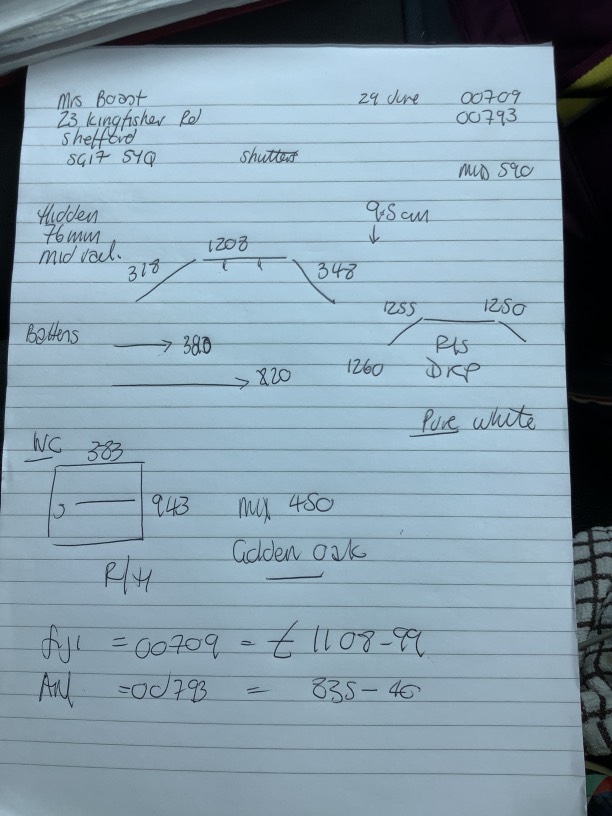 Mrs Boast 29 June 00709
23 Kingfisher Rd 00793
Shefford
SG17 5YQ Shutters
MID 590
Hidden 9.5cm
76mm
mid rail. 1208
318 348
1255 1250
Battens 380
1260 R/S
820 DRP
Pure white
WC 383
943 MID 450
Golden oak
R/H
= 00709 = £ 1108-99
= 00793 = 835-40